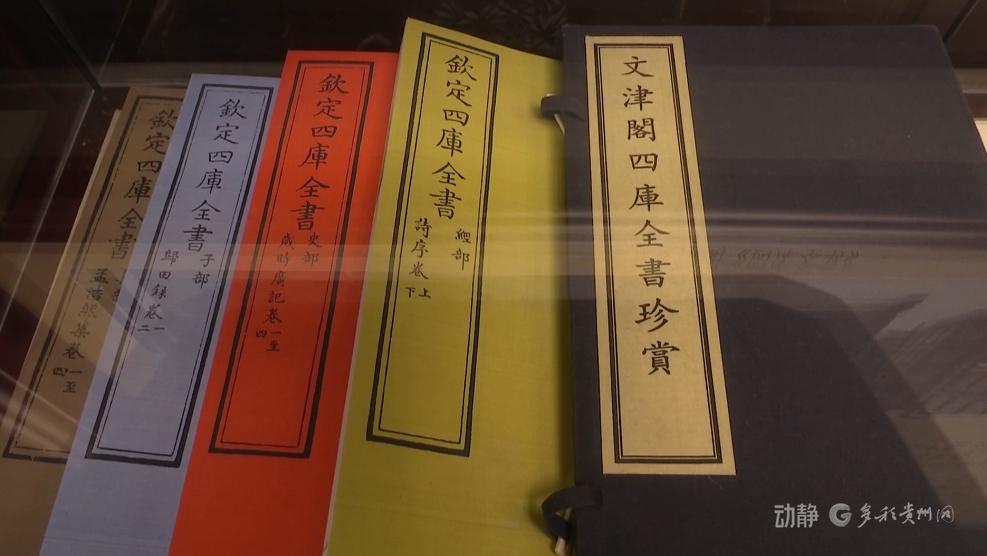 文津閣四庫全書珍賞
欽定四庫全書
經部
詩序卷上下
欽定四庫全書
史部
歲時廣記卷一至四
欽定四庫全書
子部
歸田錄卷一二
欽定四庫全書
部
孟浩然集卷一至四
动静
多彩贵州网